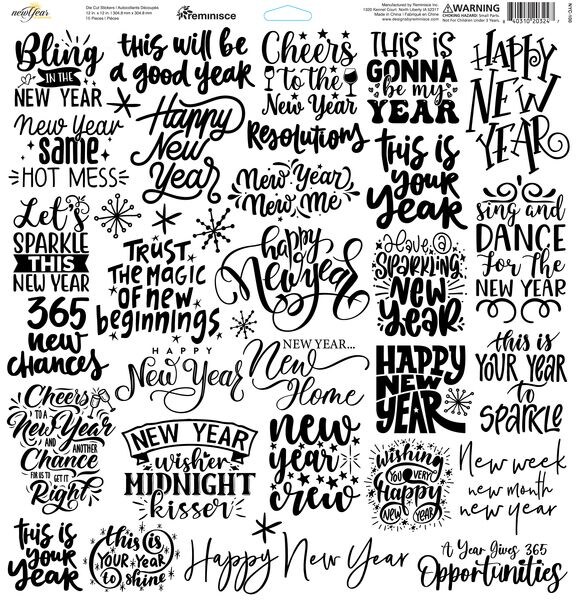 new Year
Die Cut Stickers / Autocollants Découpés
12 in x 12 in / 304.8 mm x 304.8 mm
15 Pieces / Pièces
reminisce
Manufactured by Reminisce Inc.
1320 Kennel Court, North Liberty IA 52317
Made in China / Fabriqué en Chine
www.designsbyreminisce.com
WARNING
CHOKING HAZARD! Small Parts.
Not For Children Under 3 Years.
Bling
IN THE
NEW YEAR
this will be
a good year
Cheers
to the
New Year
THIS IS
GONNA
be my
YEAR
HAPPY
NEW
YEAR
New Year
same
HOT MESS
Happy
New
Year
Resolutions
this is
your
year
New Year
New Me
Let's
SPARKLE
THIS
NEW YEAR
TRUST
THE MAGIC
OF new
beginnings
happy
New year
Have a
SPARKLING
New
year
sing and
DANCE
For The
NEW YEAR
365
new
chances
HAPPY
New Year
NEW YEAR...
New
Home
HAPPY
NEW
YEAR
this is
YOUR YEAR
to
SPARKLE
Cheers
TO A
New Year
AND ANOTHER
Chance
FOR US TO GET IT
Right
NEW YEAR
wisher
MIDNIGHT
kisser
new
year
crew
wishing
YOU A VERY
Happy
NEW YEAR
New week
new month
new year
this is
your
year
this is
YOUR YEAR
to
shine
Happy New Year
A Year Gives 365
Opportunities